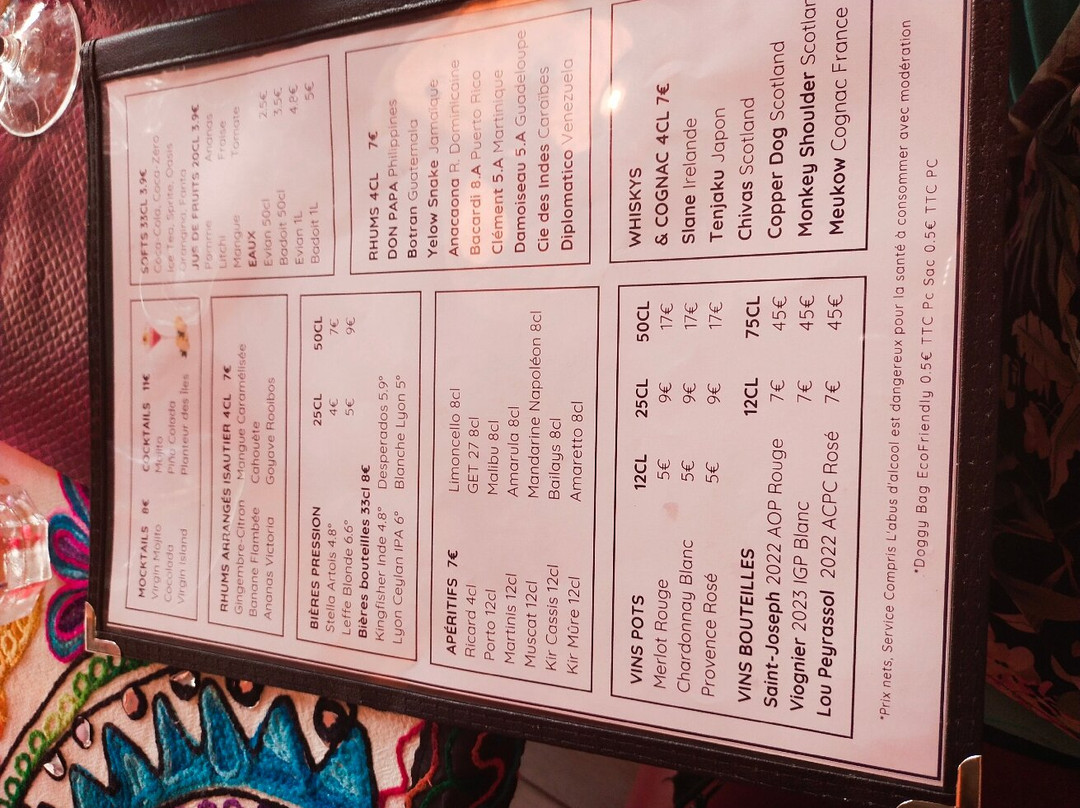 MOCKTAILS 8€ COCKTAILS 11€
Virgin Mojito Mojito
Cocolada Piña Colada
Virgin Island Planteur des Îles
SOFTS 33CL 3.9€
Coca-Cola, Coca-Zéro
Ice Tea, Sprite, Oasis
Orangina, Fanta
JUS DE FRUITS 20CL 3.9€
Pomme Ananas
Litchi Fraise
Mangue Tomate
EAUX
Evian 50cl 2.5€
Badoit 50cl 3.5€
Evian 1L 4.8€
Badoit 1L 5€
RHUMS ARRANGÉS ISAUTIER 4CL 7€
Gingembre-Citron Mangue Caramélisée
Banane Flambée Cahouète
Ananas Victoria Goyave Rooibos
BIÈRES PRESSION 25CL 50CL
Stella Artois 4.8° 4€ 7€
Leffe Blonde 6.6° 5€ 9€
Bières bouteilles 33cl 8€
Kingfisher Inde 4.8° Desperados 5.9°
Lyon Ceylan IPA 6° Blanche Lyon 5°
RHUMS 4CL 7€
DON PAPA Philippines
Botran Guatemala
Yelow Snake Jamaique
Anacaona R. Dominicaine
Bacardi 8.A Puerto Rico
Clément 5.A Martinique
Damoiseau 5.A Guadeloupe
Cie des Indes Caraïbes
Diplomatico Venezuela
APÉRITIFS 7€
Ricard 4cl Limoncello 8cl
Porto 12cl GET 27 8cl
Martinis 12cl Malibu 8cl
Muscat 12cl Amarula 8cl
Kir Cassis 12cl Mandarine Napoléon 8cl
Kir Mûre 12cl Bailays 8cl
Amaretto 8cl
WHISKYS
& COGNAC 4CL 7€
Slane Irelande
Tenjaku Japon
Chivas Scotland
Copper Dog Scotland
Monkey Shoulder Scotlan
Meukow Cognac France
VINS POTS 12CL 25CL 50CL
Merlot Rouge 5€ 9€ 17€
Chardonnay Blanc 5€ 9€ 17€
Provence Rosé 5€ 9€ 17€
VINS BOUTEILLES 12CL 75CL
Saint-Joseph 2022 AOP Rouge 7€ 45€
Viognier 2023 IGP Blanc 7€ 45€
Lou Peyrassol 2022 ACPC Rosé 7€ 45€
*Prix nets, Service Compris L'abus d'alcool est dangereux pour la santé à consommer avec modération
*Doggy Bag EcoFriendly 0.5€ TTC Pc Sac 0.5€ TTC PC